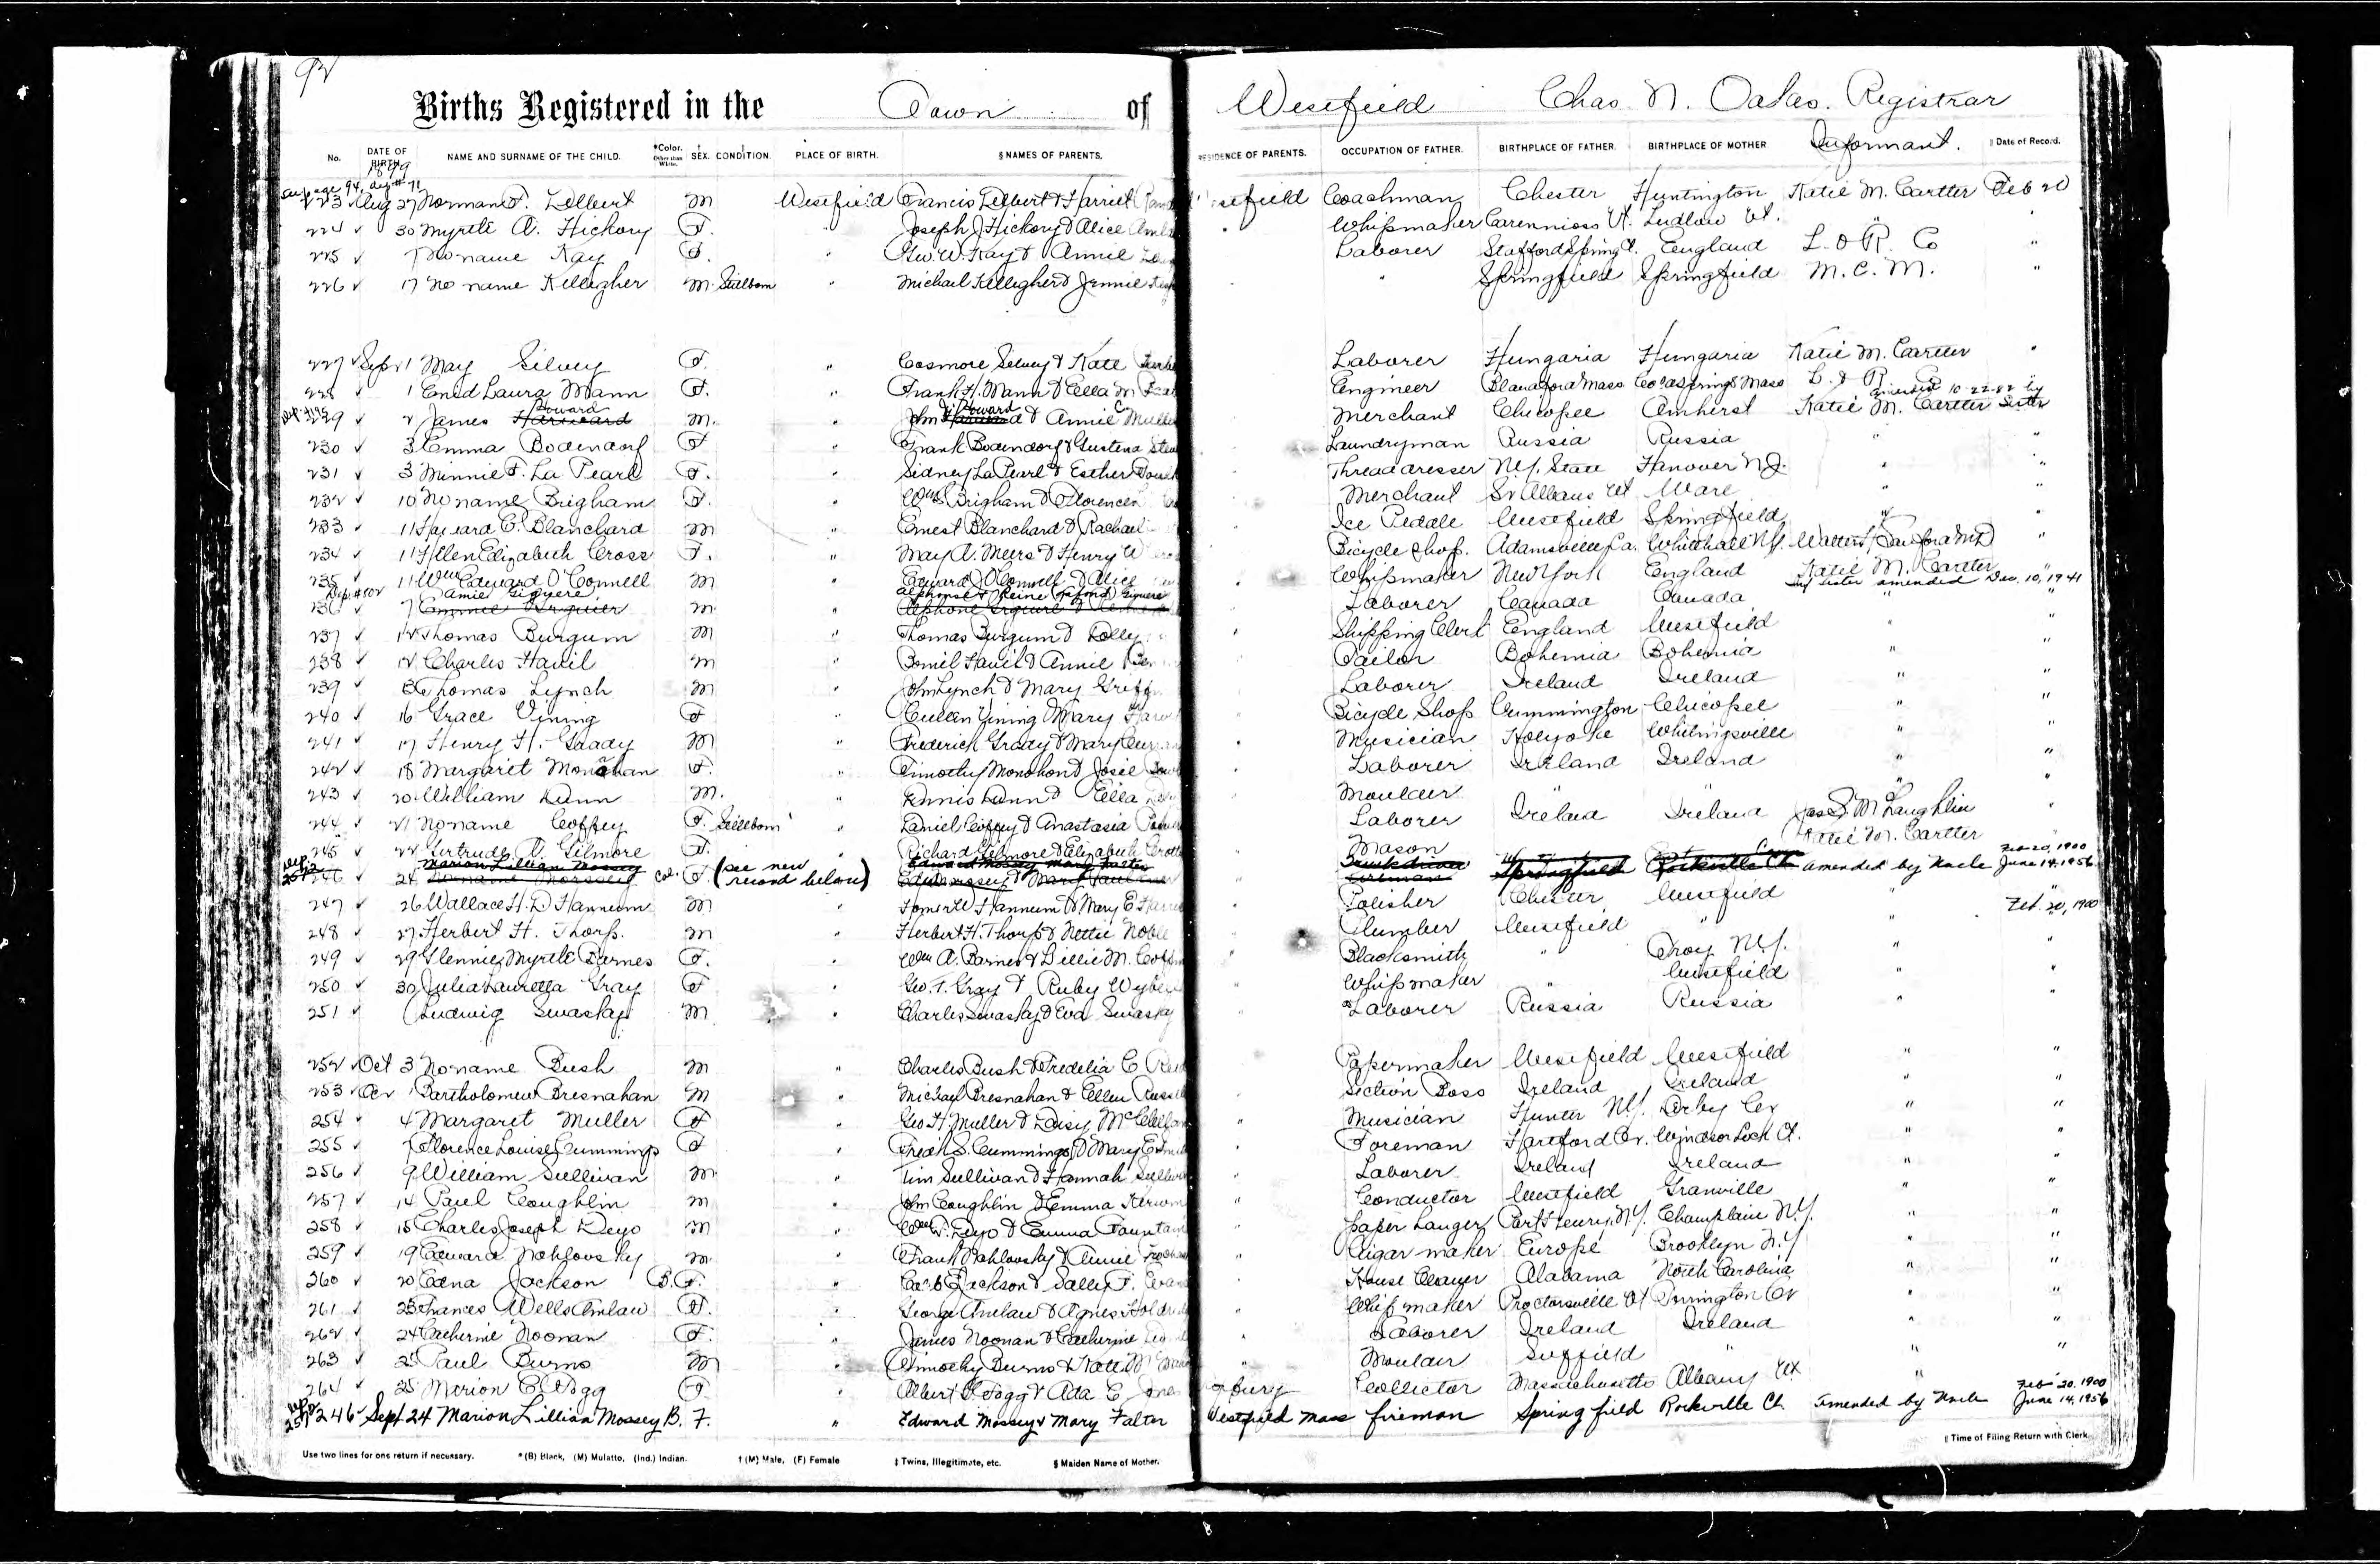 92
Births Registered in the Town of Westfield Chas. N. Oakes. Registrar
No. DATE OF BIRTH. NAME AND SURNAME OF THE CHILD. *Color. Other than White. SEX. CONDITION. PLACE OF BIRTH. §NAMES OF PARENTS. RESIDENCE OF PARENTS. OCCUPATION OF FATHER. BIRTHPLACE OF FATHER. BIRTHPLACE OF MOTHER Informant. Date of Record.
1899
223 Aug 27 Norman F. M Westfield Francis & Harriet Westfield Coachman Chester Huntington Katie M. Cartter Feb 20
224 30 Myrtle A. Hickory F. " Joseph J Hickory & Alice " Whipmaker Vt. Ludlow Vt. " "
225 7 No name Kay F. " Geo. W. Kay & Annie Laborer Stafford Spring Ct. England L. & R. Co "
226 17 No name Kellegher M. Stillborn " Michael Kellegher & Jennie " Springfield Springfield M. C. M. "
227 Sept 1 May Silvey F. " Cosmore Selvey & Kate Laborer Hungaria Hungaria Katie M. Cartter "
228 1 Enid Laura Mann F. " Frank H. Mann & Ella M. Engineer Blandford Mass Mass L. & R. Co
229 2 James Howard M. " John J. Howard & Annie C Merchant Chicopee Amherst Katie M. Cartter amended 10-22-82 by Sister
230 3 Emma Bodendorf F " Frank Bodendorf & Gustena Laundryman Russia Russia " "
231 3 Minnie F. La Pearl F. " Sidney La Pearl & Esther Thread dresser N.Y. State Hanover N.J. " "
232 10 No name Brigham F. " Wm. Brigham & Florence Merchant St Albans Vt Ware " "
233 11 Hayward C. Blanchard M " Ernest Blanchard & Rachael Ice Pedale Westfield Springfield " "
234 11 Hellen Elizabeth Cross F. " May A. Meers & Henry W Bicycle Shop. Adamsville Pa. Whitehall N.Y. "
235 11 Wm Edward O'Connell M " Edward J O'Connell & Alice Whipmaker New York England Katie M. Cartter "
Dep. #102 Amie Giguere Alphonse & Reine (Lafond) Giguere by sister amended Dec. 10, 1941
236 7 M " Laborer Canada Canada " "
237 12 Thomas Burgum M " Thomas Burgum & Dolly Shipping Clerk England Westfield " "
238 12 Charles Havil M " Bomil Havil & Annie Tailor Bohemia Bohemia " "
239 13 Thomas Lynch M " John Lynch & Mary Griff Laborer Ireland Ireland " "
240 16 Grace Vining F " Cullen Vining & Mary Bicycle Shop Cummington Chicopee " "
241 17 Henry H. Grady M " Frederick Grady & Mary Musician Holyoke Whitingsville " "
242 18 Margaret Monahan F. " Timothy Monohon & Josie Laborer Ireland Ireland " "
243 20 William Dunn M. " Dennis Dunn & Ella Moulder " " " "
244 21 No name Coffey F. Stillborn " Daniel Coffey & Anastasia Laborer Ireland Ireland Jas S. McLaughlin "
245 22 Gertrude V. Gilmore F. " Richard Gilmore & Elizabeth Mason Katie M. Cartter
246 24 Marion Lillian Mossey Col. F. (see new record below) Edward Mossey Mary Falter Springfield Rockville Ct. amended by Uncle Feb 20, 1900 June 14, 1956
247 26 Wallace H. D Hannum M " Homer W Hannum & Mary E Polisher Chester Westfield " Feb. 20, 1900
248 27 Herbert H. Thorp. M " Herbert H. Thorp & Nettie Noble Plumber Westfield " " "
249 29 Glennie Myrtle Barnes F. " Wm A. Barnes & Lillie M. Blacksmith " Troy N.Y. " "
250 30 Julia Lauretta Gray F " Geo. T. Gray & Ruby Whipmaker " Westfield " "
251 Ludwig Swasky M " Charles Swasky & Eva Swasky Laborer Russia Russia " "
252 Oct 3 No name Bush M " Charles Bush & Fredelia C. Papermaker Westfield Westfield " "
253 Oct 1 Bartholomew Bresnahan M " Michael Bresnahan & Ellen Section Boss Ireland Ireland " "
254 4 Margaret Muller F " Geo H. Muller & Daisy Musician Hunter N.Y. Derby Ct " "
255 7 Florence Louise Cummings F " Fred S. Cummings & Mary E Foreman Hartford Ct. Windsor Lock Ct. " "
256 9 William Sullivan M " Tim Sullivan & Hannah Sullivan Laborer Ireland Ireland " "
257 14 Paul Coughlin M " John Coughlin & Emma Conductor Westfield Granville " "
258 15 Charles Joseph Deyo M " Wm W. Deyo & Emma Paper Hanger Port Henry, N.Y. Champlain N.Y. " "
259 19 Edward Nahlovsky M " Frank Nahlovsky & Annie Cigar maker Europe Brooklyn N.Y " "
260 20 Edna Jackson B. F. " Jackson & Sally F. House Cleaner Alabama North Carolina " "
261 23 Frances Wells Amlaw F. " George Amlaw & Agnes Whip maker Proctorsville Vt Torrington Ct " "
262 24 Catherine Noonan F. " James Noonan & Catherine Laborer Ireland Ireland " "
263 25 Paul Burns M " Timothy Burns & Kate Moulder Suffield " " "
264 25 Merion E. Fogg F. " Albert Fogg & Ada E. Collector Massachusetts Albany "
Dep. 257 246 Sept 24 Marion Lillian Mossey B. F. " Edward Mossey & Mary Falter Westfield Mass fireman Springfield Rockville Ct. Amended by Uncle Feb 20, 1900 June 14, 1956
Use two lines for one return if necessary. *(B) Black, (M) Mulatto, (Ind.) Indian. †(M) Male, (F) Female ‡Twins, Illegitimate, etc. §Maiden Name of Mother. ‖Time of Filing Return with Clerk.